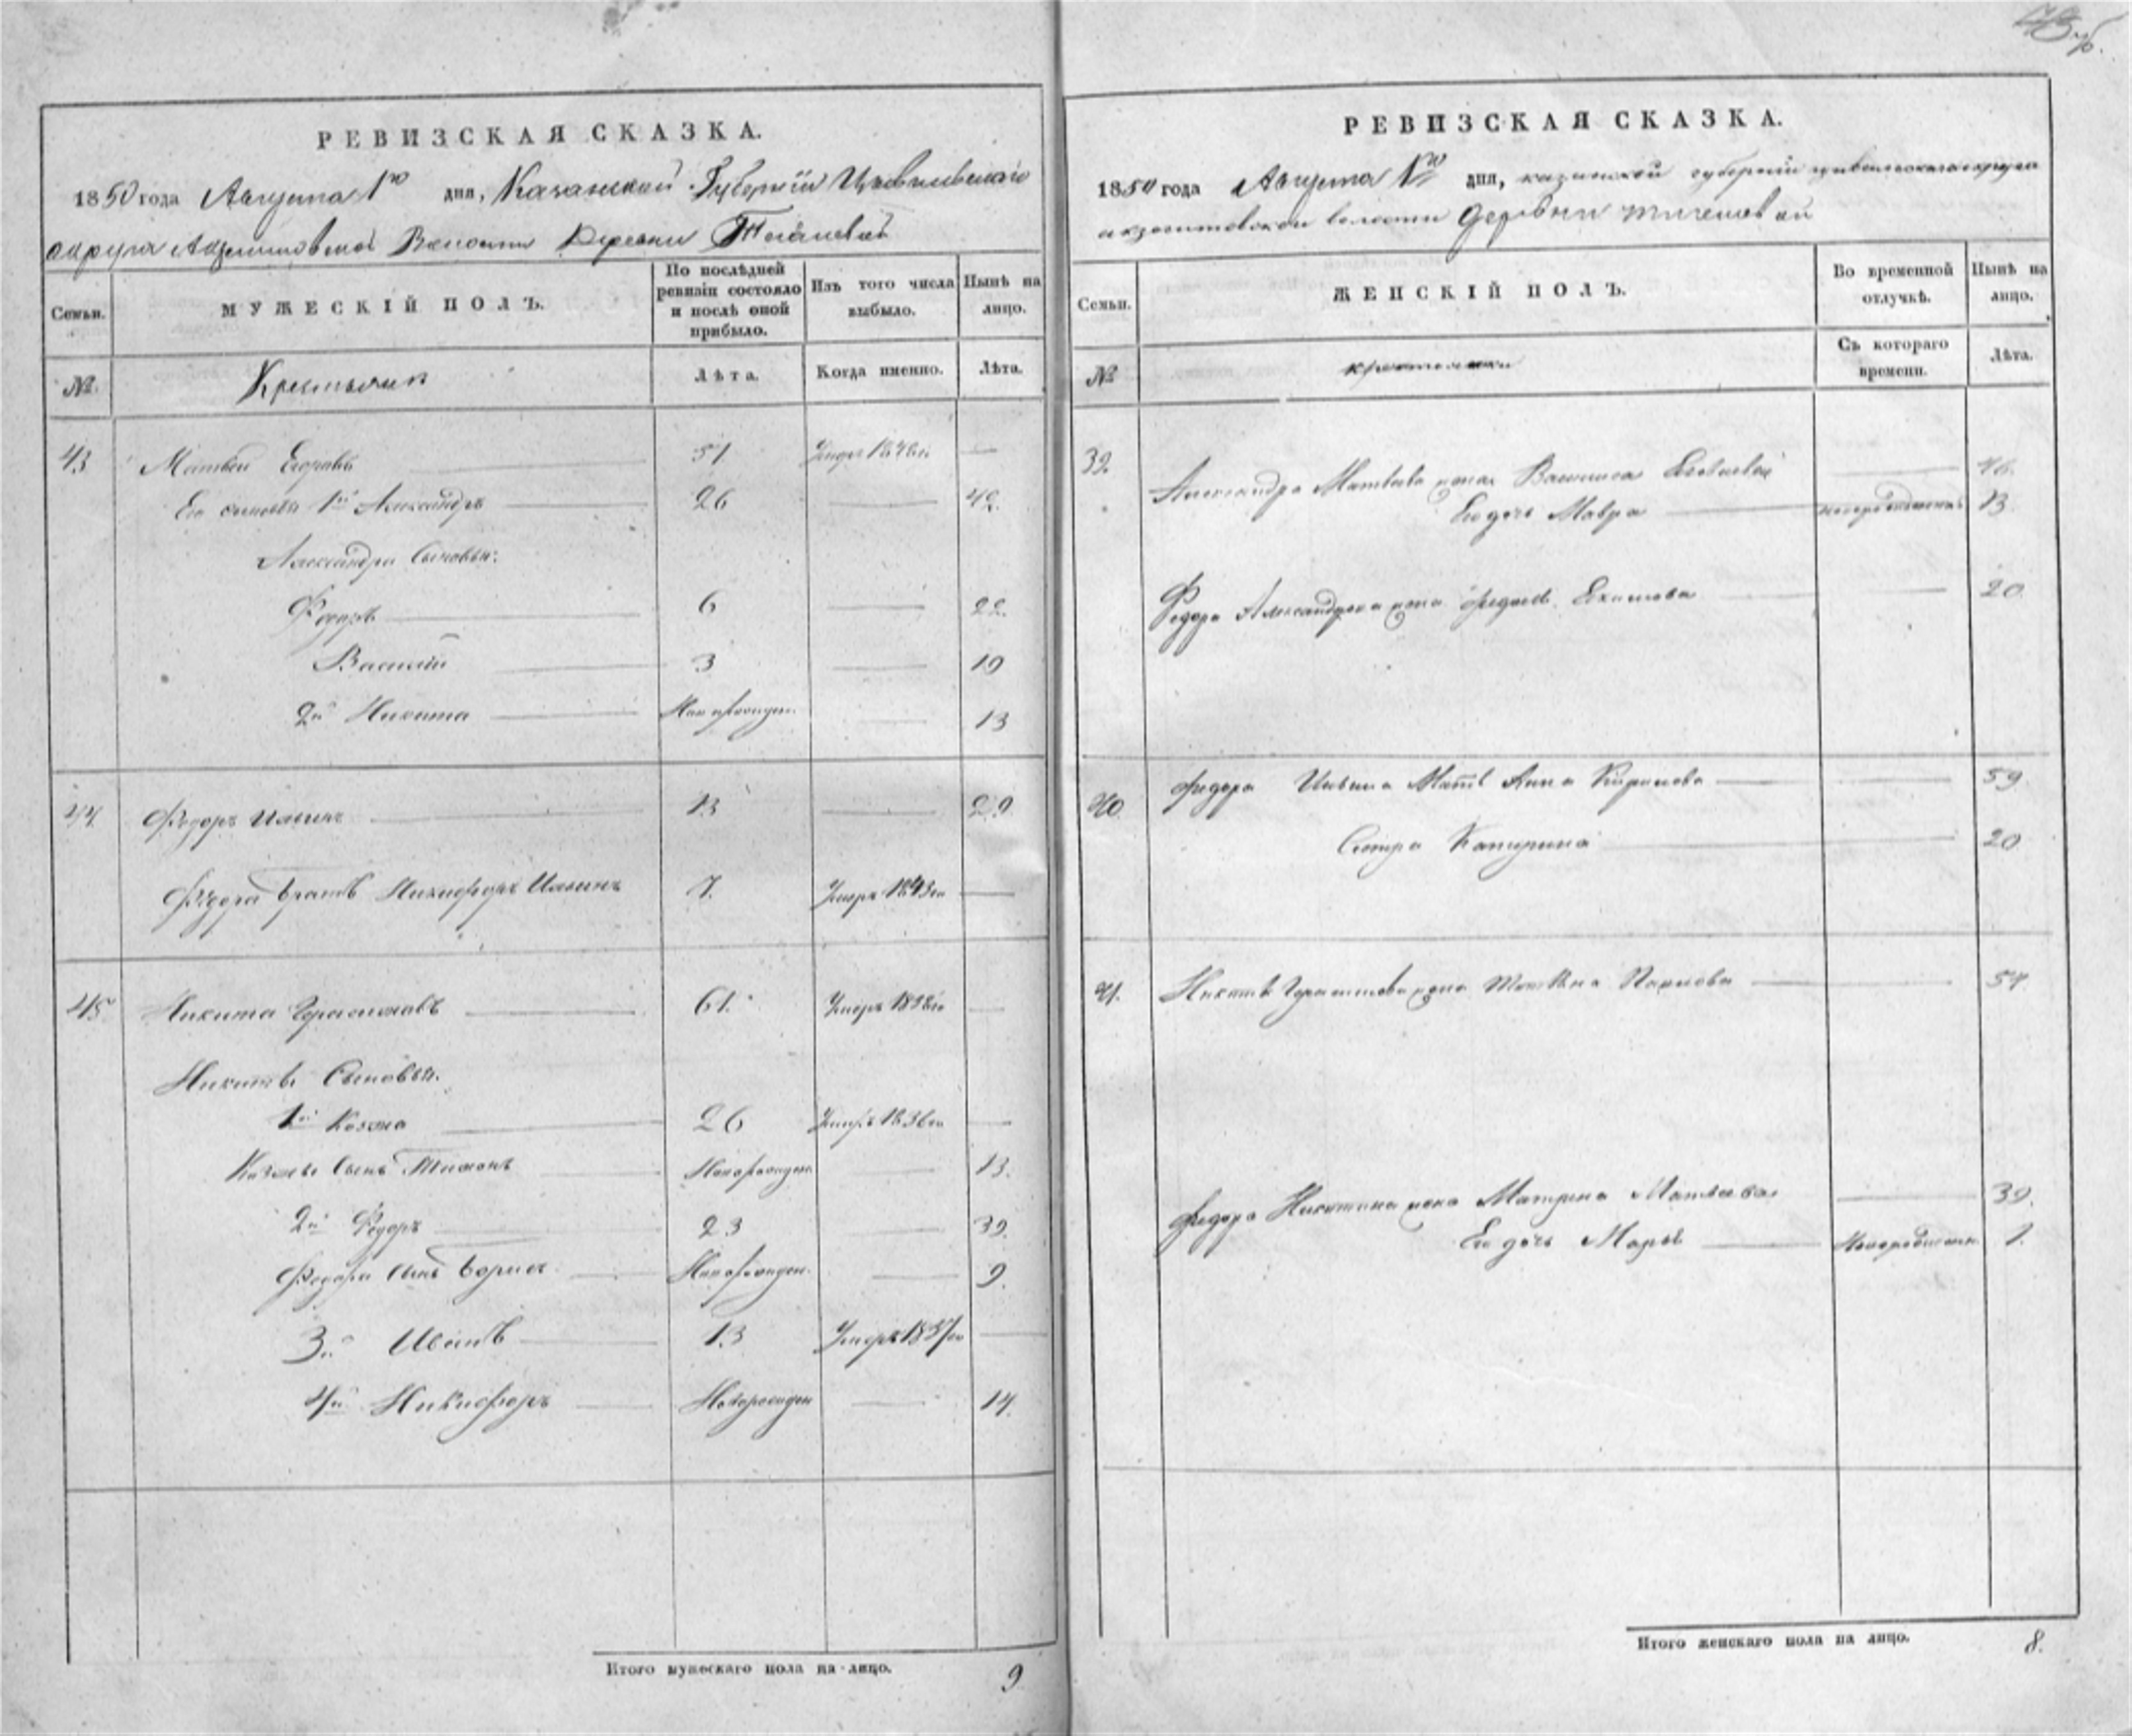 РЕВИЗСКАЯ СКАЗКА.
1850 года Августа 1го дня, Казанской Губернiи Цывильскаго
округа Акзегитовской Волости Деревни
Семьи. МУЖЕСКIЙ ПОЛЪ. По послѣдней ревизiи состояло и послѣ оной прибыло. Изъ того числа выбыло. Нынѣ на лицо.
№ Крестьяне Лѣта. Когда именно. Лѣта.
43 Матвей Егоровъ 51 —
Его сыновья 1й Александръ 26 — 42
Александра Сыновья:
Федоръ 6 — 22
Василiй 3 — 19
2й Никита Новорожден. — 13
44 Федоръ Ильинъ 13 — 29
Федора братъ Никифоръ Ильинъ 7. Умеръ 1843го —
45 Никита Герасимовъ 61. Умеръ 1838го —
Никиты Сыновья.
1й Козма 26 Умеръ 1836го —
Козмы Сынъ Тимонъ Новорожден — 13.
2й Федоръ 23 — 39.
Федора Сынъ Борисъ Новорожден. — 9.
3й Иванъ 13 Умеръ 1837го —
4й Никифоръ Новорожден — 14.
Итого мужескаго пола на-лицо. 9
РЕВИЗСКАЯ СКАЗКА.
1850 года Августа 1го дня, казанской губернiи цивильскаго округа
акзегитовской волости деревни
Семьи. ЖЕНСКIЙ ПОЛЪ. Во временной отлучкѣ. Нынѣ на лицо.
№ крестьянки Съ котораго времени. Лѣта.
39. Александра Матвева жена Василиса —
Его дочь Мавра 13
Федора Александрова жена Екимова — 20
40 Федора Ильина Мать Анна Кирилова — 59
Сестра Катерина — 20
41. Никиты Герасимова жена Павлова — 57
Федора Никитина жена Матрена Матвева — 39.
Его дочь Марья Новорожден 1.
Итого женскаго пола на лицо. 8.